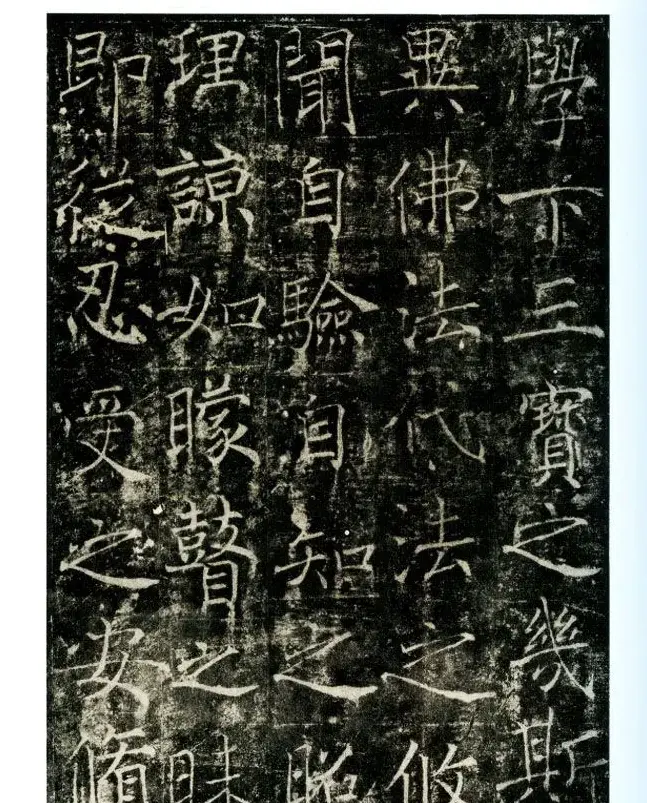 學下三寶之幾斯
異佛法代法之攸
聞自驗自知之昭
理諒如矇瞽之昧
即從忍受之安脩